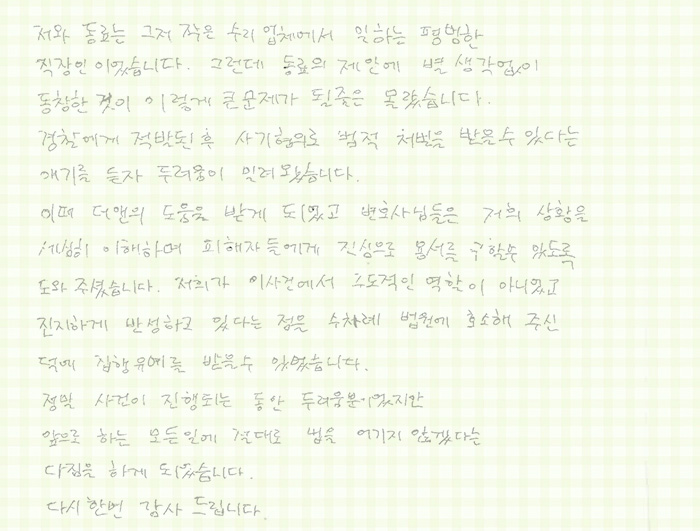 저와 동료는 그저 작은 수리 업체에서 일하는 평범한
직장인이었습니다. 그런데 동료의 제안에 별 생각없이
동참한 것이 이렇게 큰문제가 될줄은 몰랐습니다.
경찰에게 적발된 후 사기혐의로 법적 처벌을 받을수 있다는
얘기를 듣자 두려움이 밀려왔습니다.
이때 더앤의 도움을 받게 되었고 변호사님들은 저희 상황을
세심히 이해하며 피해자들에게 진심으로 용서를 구할수 있도록
도와 주셨습니다. 저희가 이사건에서 주도적인 역할이 아니었고
진지하게 반성하고 있다는 점을 수차례 법원에 호소해 주신
덕에 집행유예를 받을수 있었습니다.
정말 사건이 진행되는 동안 두려움뿐이었지만
앞으로 하는 모든일에 절대로 법을 어기지 않겠다는
다짐을 하게 되었습니다.
다시한번 감사 드립니다.